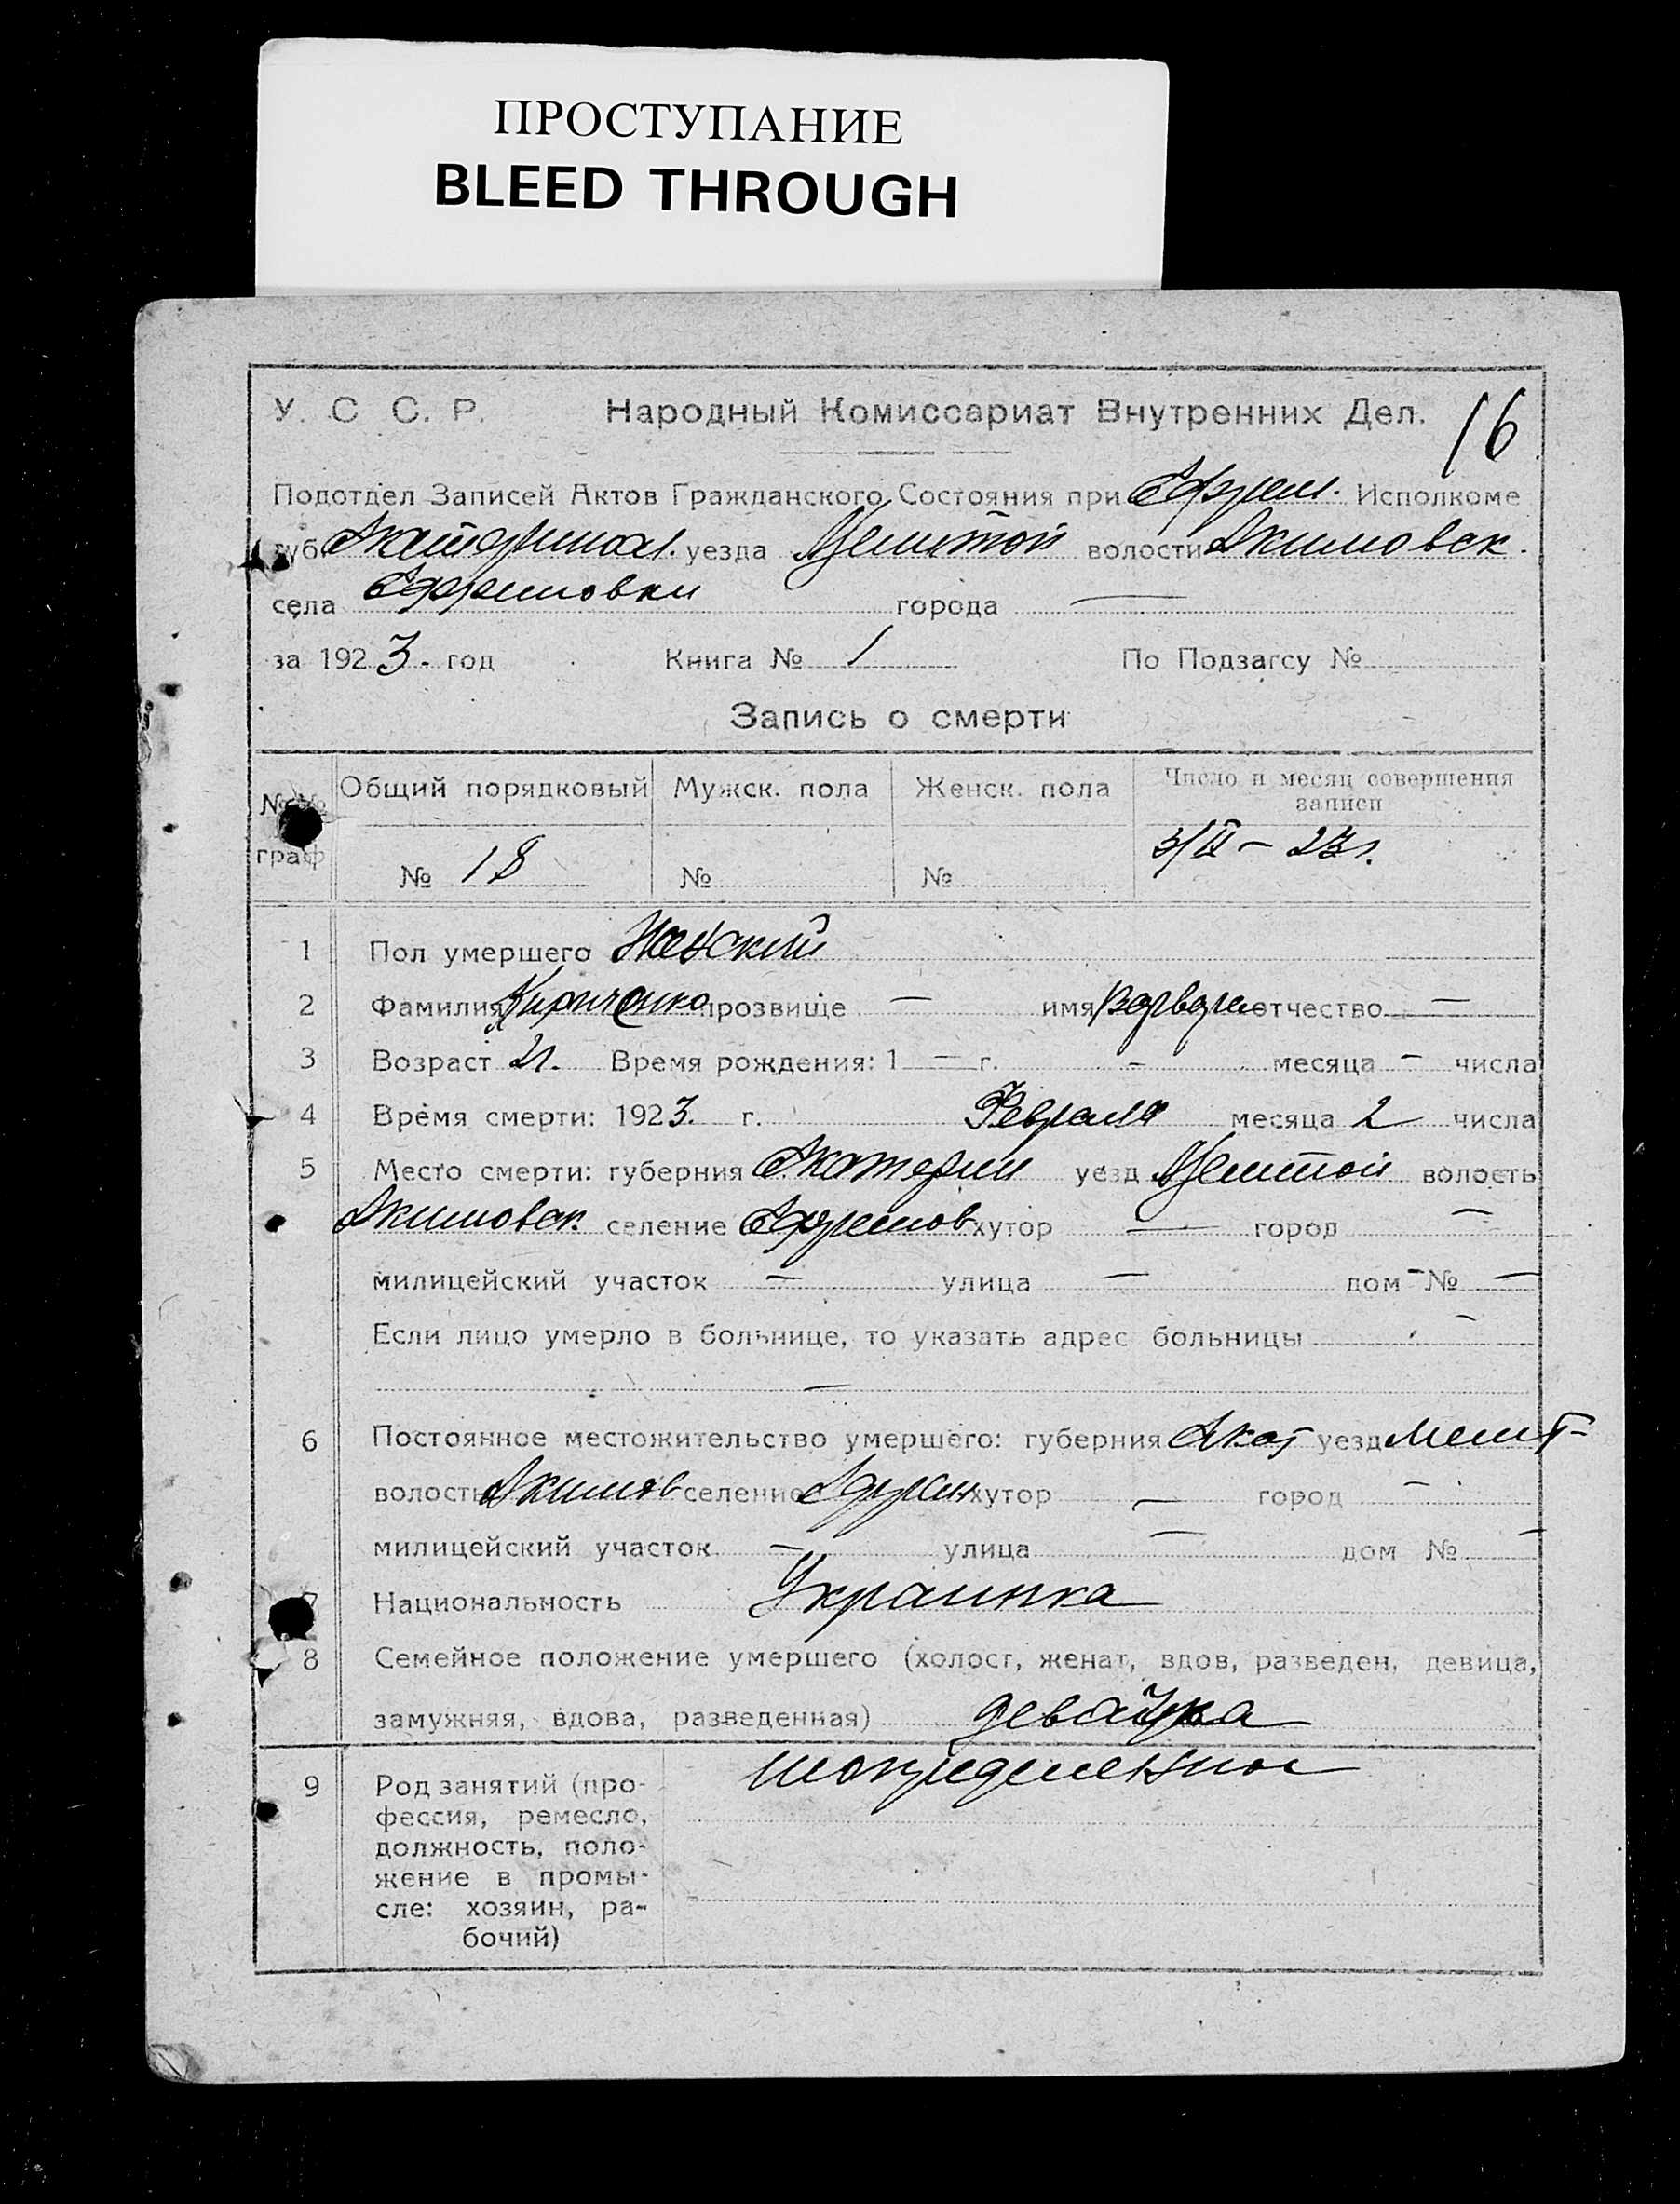 ПРОСТУПАНИЕ
BLEED THROUGH
У. С. С. Р. Народный Комиссариат Внутренних Дел. 16
Подотдел Записей Актов Гражданского Состояния при Ефрем. Исполкоме
губ. Екатеринос. уезда Мелитой волости Акимовск.
села Ефремовки города —
за 1923. год Книга № 1 По Подзагсу №
Запись о смерти
№№ граф
Общий порядковый Мужск. пола Женск. пола Число и месяц совершения записи
№ 18 № № 3/II – 23 г.
1 Пол умершего Женский
2 Фамилия Кириченко прозвище — имя Варвара отчество —
3 Возраст 2 г. Время рождения: 1 — г. - месяца - числа
4 Время смерти: 1923. г. Февраля месяца 2 числа
5 Место смерти: губерния Екатерин уезд Мелитой волость
Акимовск. селение Ефремов хутор — город —
милицейский участок — улица — дом - № —
Если лицо умерло в больнице, то указать адрес больницы —
—
6 Постоянное местожительство умершего: губерния Екат уезд Мелит-
волость Акимов селение Ефрем хутор — город —
милицейский участок — улица — дом № —
7 Национальность Украинка
8 Семейное положение умершего (холост, женат, вдов, разведен, девица,
замужняя, вдова, разведенная) девачка
9 Род занятий (про-
фессия, ремесло,
должность, поло-
жение в промы-
сле: хозяин, ра-
бочий)